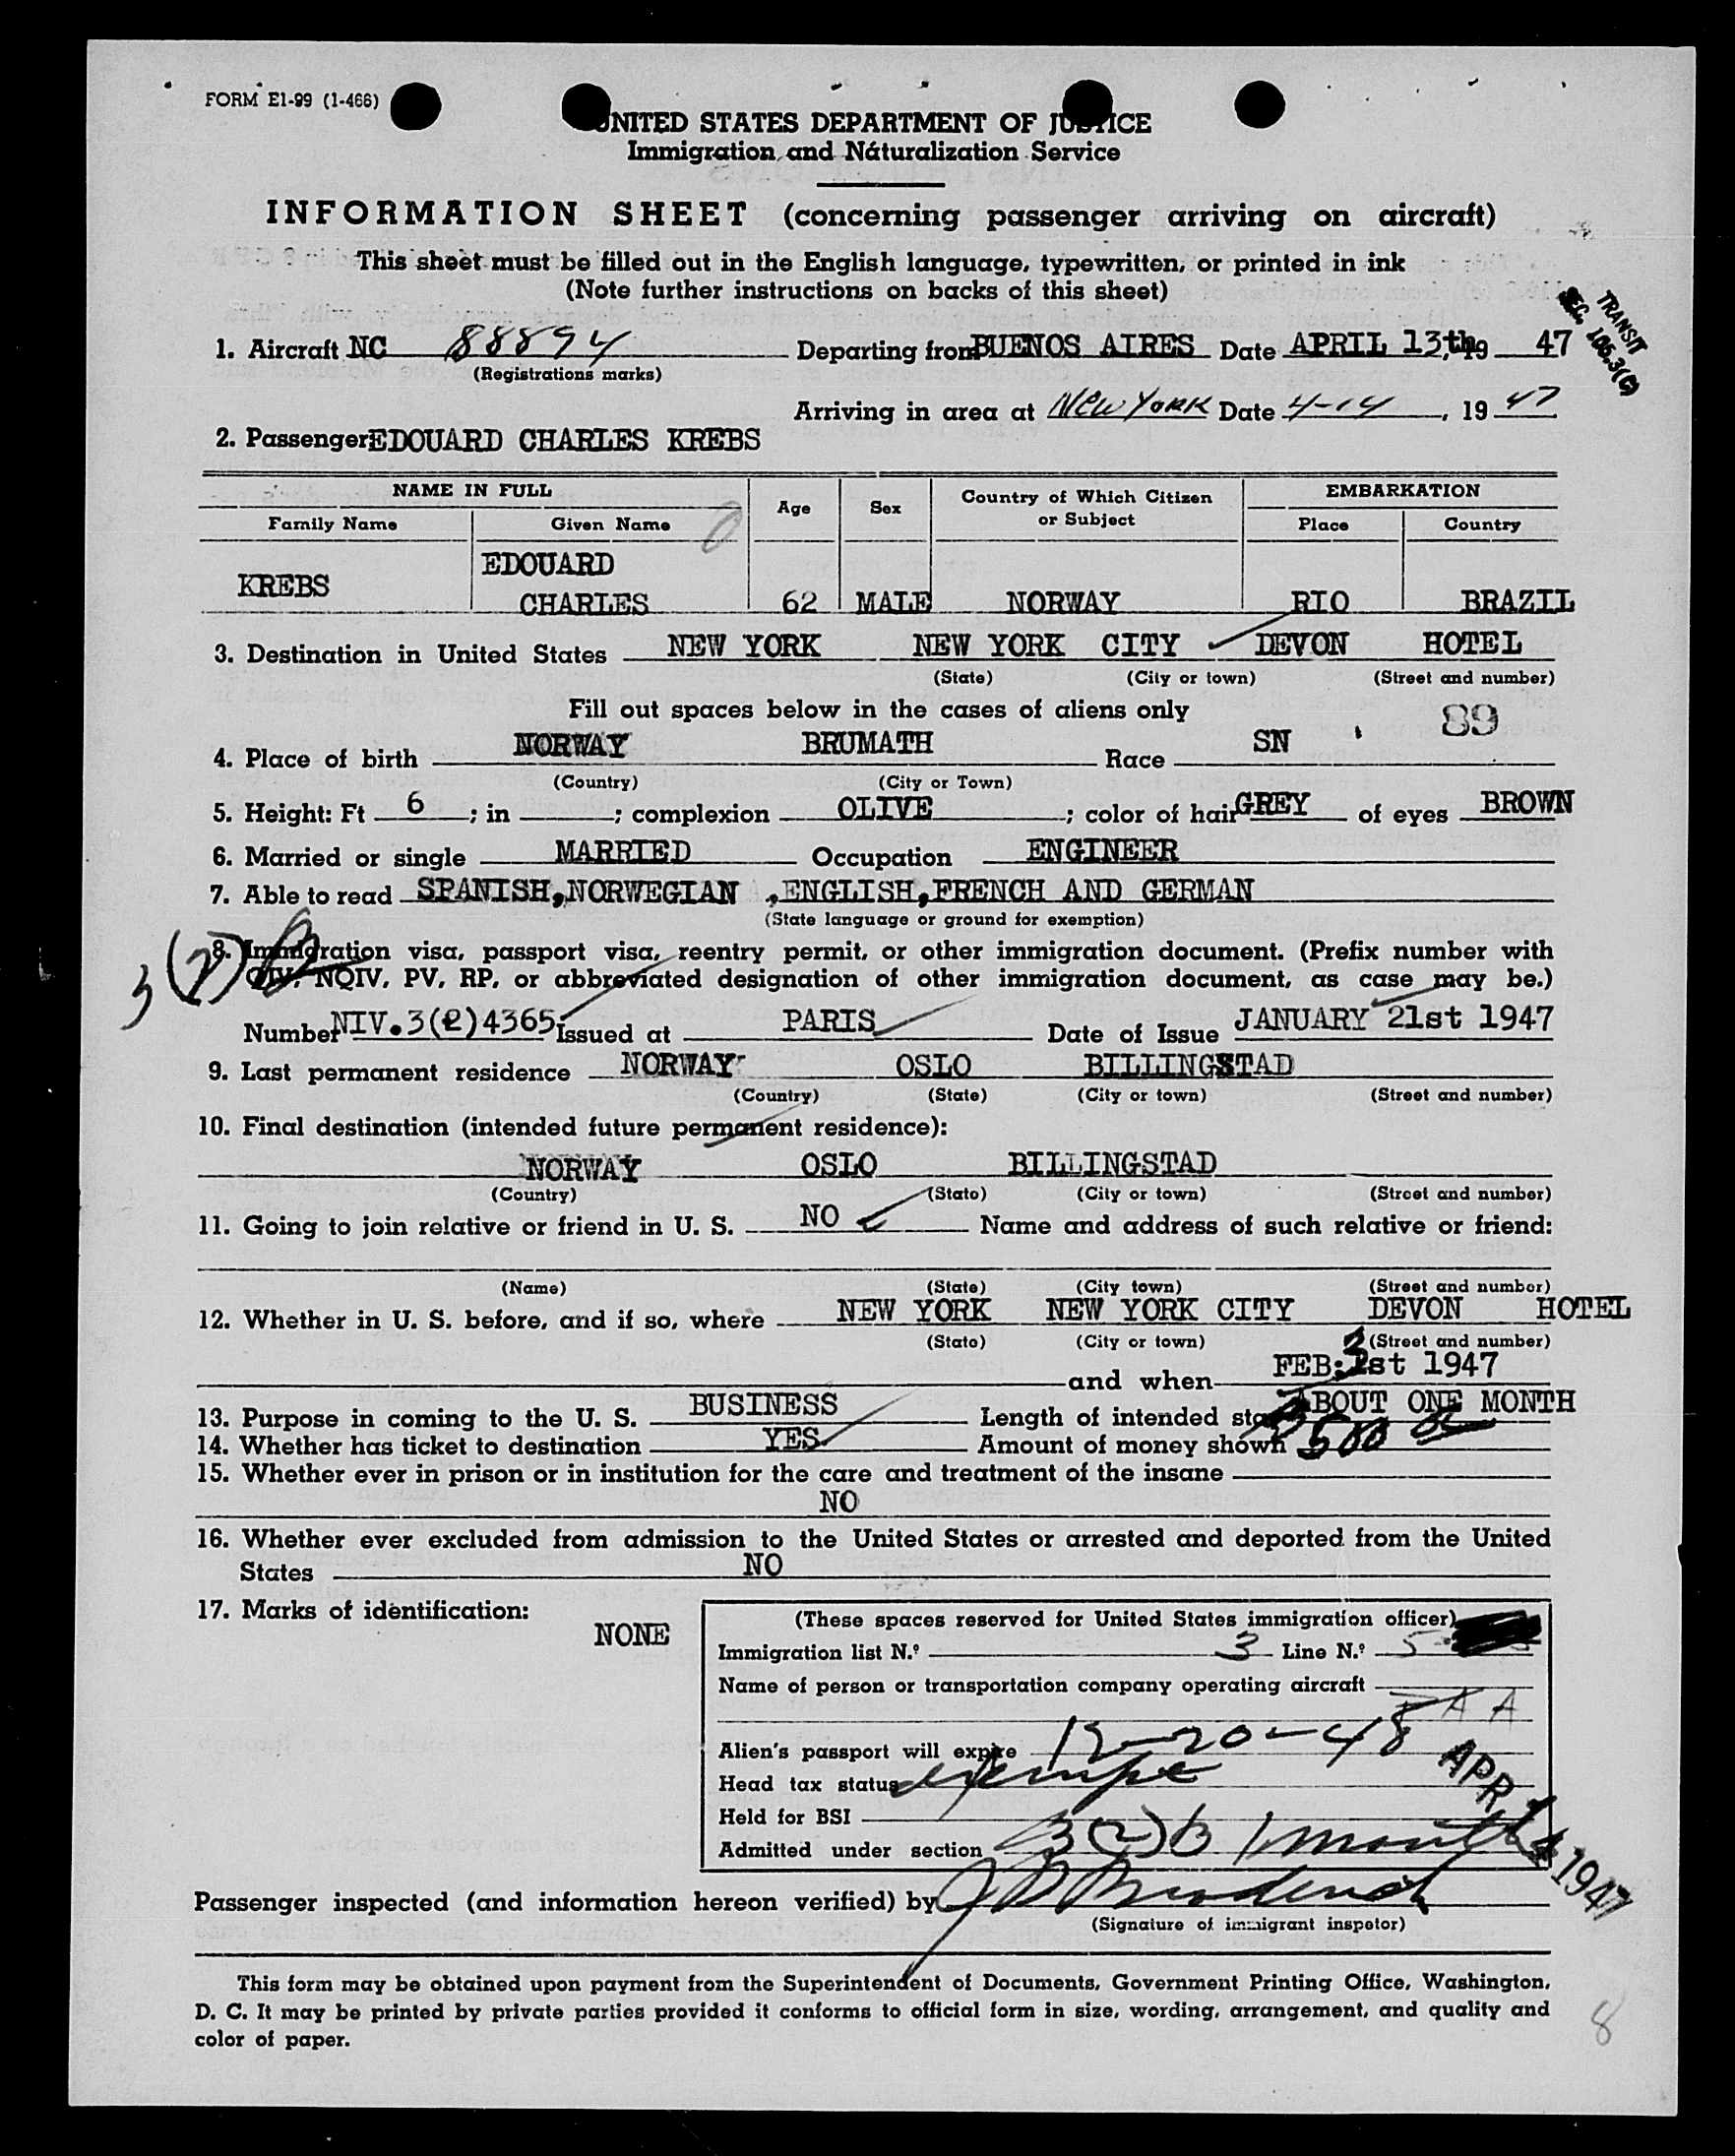 FORM E1-99 (1-466)
UNITED STATES DEPARTMENT OF JUSTICE
Immigration and Naturalization Service
INFORMATION SHEET (concerning passenger arriving on aircraft)
This sheet must be filled out in the English language, typewritten, or printed in ink
(Note further instructions on backs of this sheet)
TRANSIT
SEC. 106.3(C)
1. Aircraft NC 88894 Departing from BUENOS AIRES Date APRIL 13th, 19 47
(Registrations marks)
Arriving in area at New York Date 4-14, 19 47
2. Passenger EDOUARD CHARLES KREBS
NAME IN FULL Age Sex Country of Which Citizen or Subject EMBARKATION
Family Name Given Name Place Country
KREBS EDOUARD CHARLES 62 MALE NORWAY RIO BRAZIL
3. Destination in United States NEW YORK NEW YORK CITY DEVON HOTEL
(State) (City or town) (Street and number)
Fill out spaces below in the cases of aliens only
89
4. Place of birth NORWAY BRUMATH Race SN
(Country) (City or Town)
5. Height: Ft 6 ; in ; complexion OLIVE ; color of hair GREY of eyes BROWN
6. Married or single MARRIED Occupation ENGINEER
7. Able to read SPANISH, NORWEGIAN , ENGLISH, FRENCH AND GERMAN
(State language or ground for exemption)
3(2)B
8. Immigration visa, passport visa, reentry permit, or other immigration document. (Prefix number with
QIV, NQIV, PV, RP, or abbreviated designation of other immigration document, as case may be.)
Number NIV.3(2)4365 Issued at PARIS Date of Issue JANUARY 21st 1947
9. Last permanent residence NORWAY OSLO BILLINGSTAD
(Country) (State) (City or town) (Street and number)
10. Final destination (intended future permanent residence):
NORWAY OSLO BILLINGSTAD
(Country) (State) (City or town) (Street and number)
11. Going to join relative or friend in U. S. NO Name and address of such relative or friend:
(Name) (State) (City town) (Street and number)
12. Whether in U. S. before, and if so, where NEW YORK NEW YORK CITY DEVON HOTEL
(State) (City or town) (Street and number)
and when FEB: 3 1st 1947
13. Purpose in coming to the U. S. BUSINESS Length of intended stay ABOUT ONE MONTH
14. Whether has ticket to destination YES Amount of money shown 500
15. Whether ever in prison or in institution for the care and treatment of the insane
NO
16. Whether ever excluded from admission to the United States or arrested and deported from the United
States NO
17. Marks of identification: NONE
(These spaces reserved for United States immigration officer)
Immigration list N.º 3 Line N.º 5
Name of person or transportation company operating aircraft
PAA
Alien's passport will expire 12-20-48
Head tax status exempt
Held for BSI
Admitted under section 3(2)b 1 month
APR 14 1947
Passenger inspected (and information hereon verified) by
(Signature of immigrant inspetor)
This form may be obtained upon payment from the Superintendent of Documents, Government Printing Office, Washington,
D. C. It may be printed by private parties provided it conforms to official form in size, wording, arrangement, and quality and
color of paper.
8